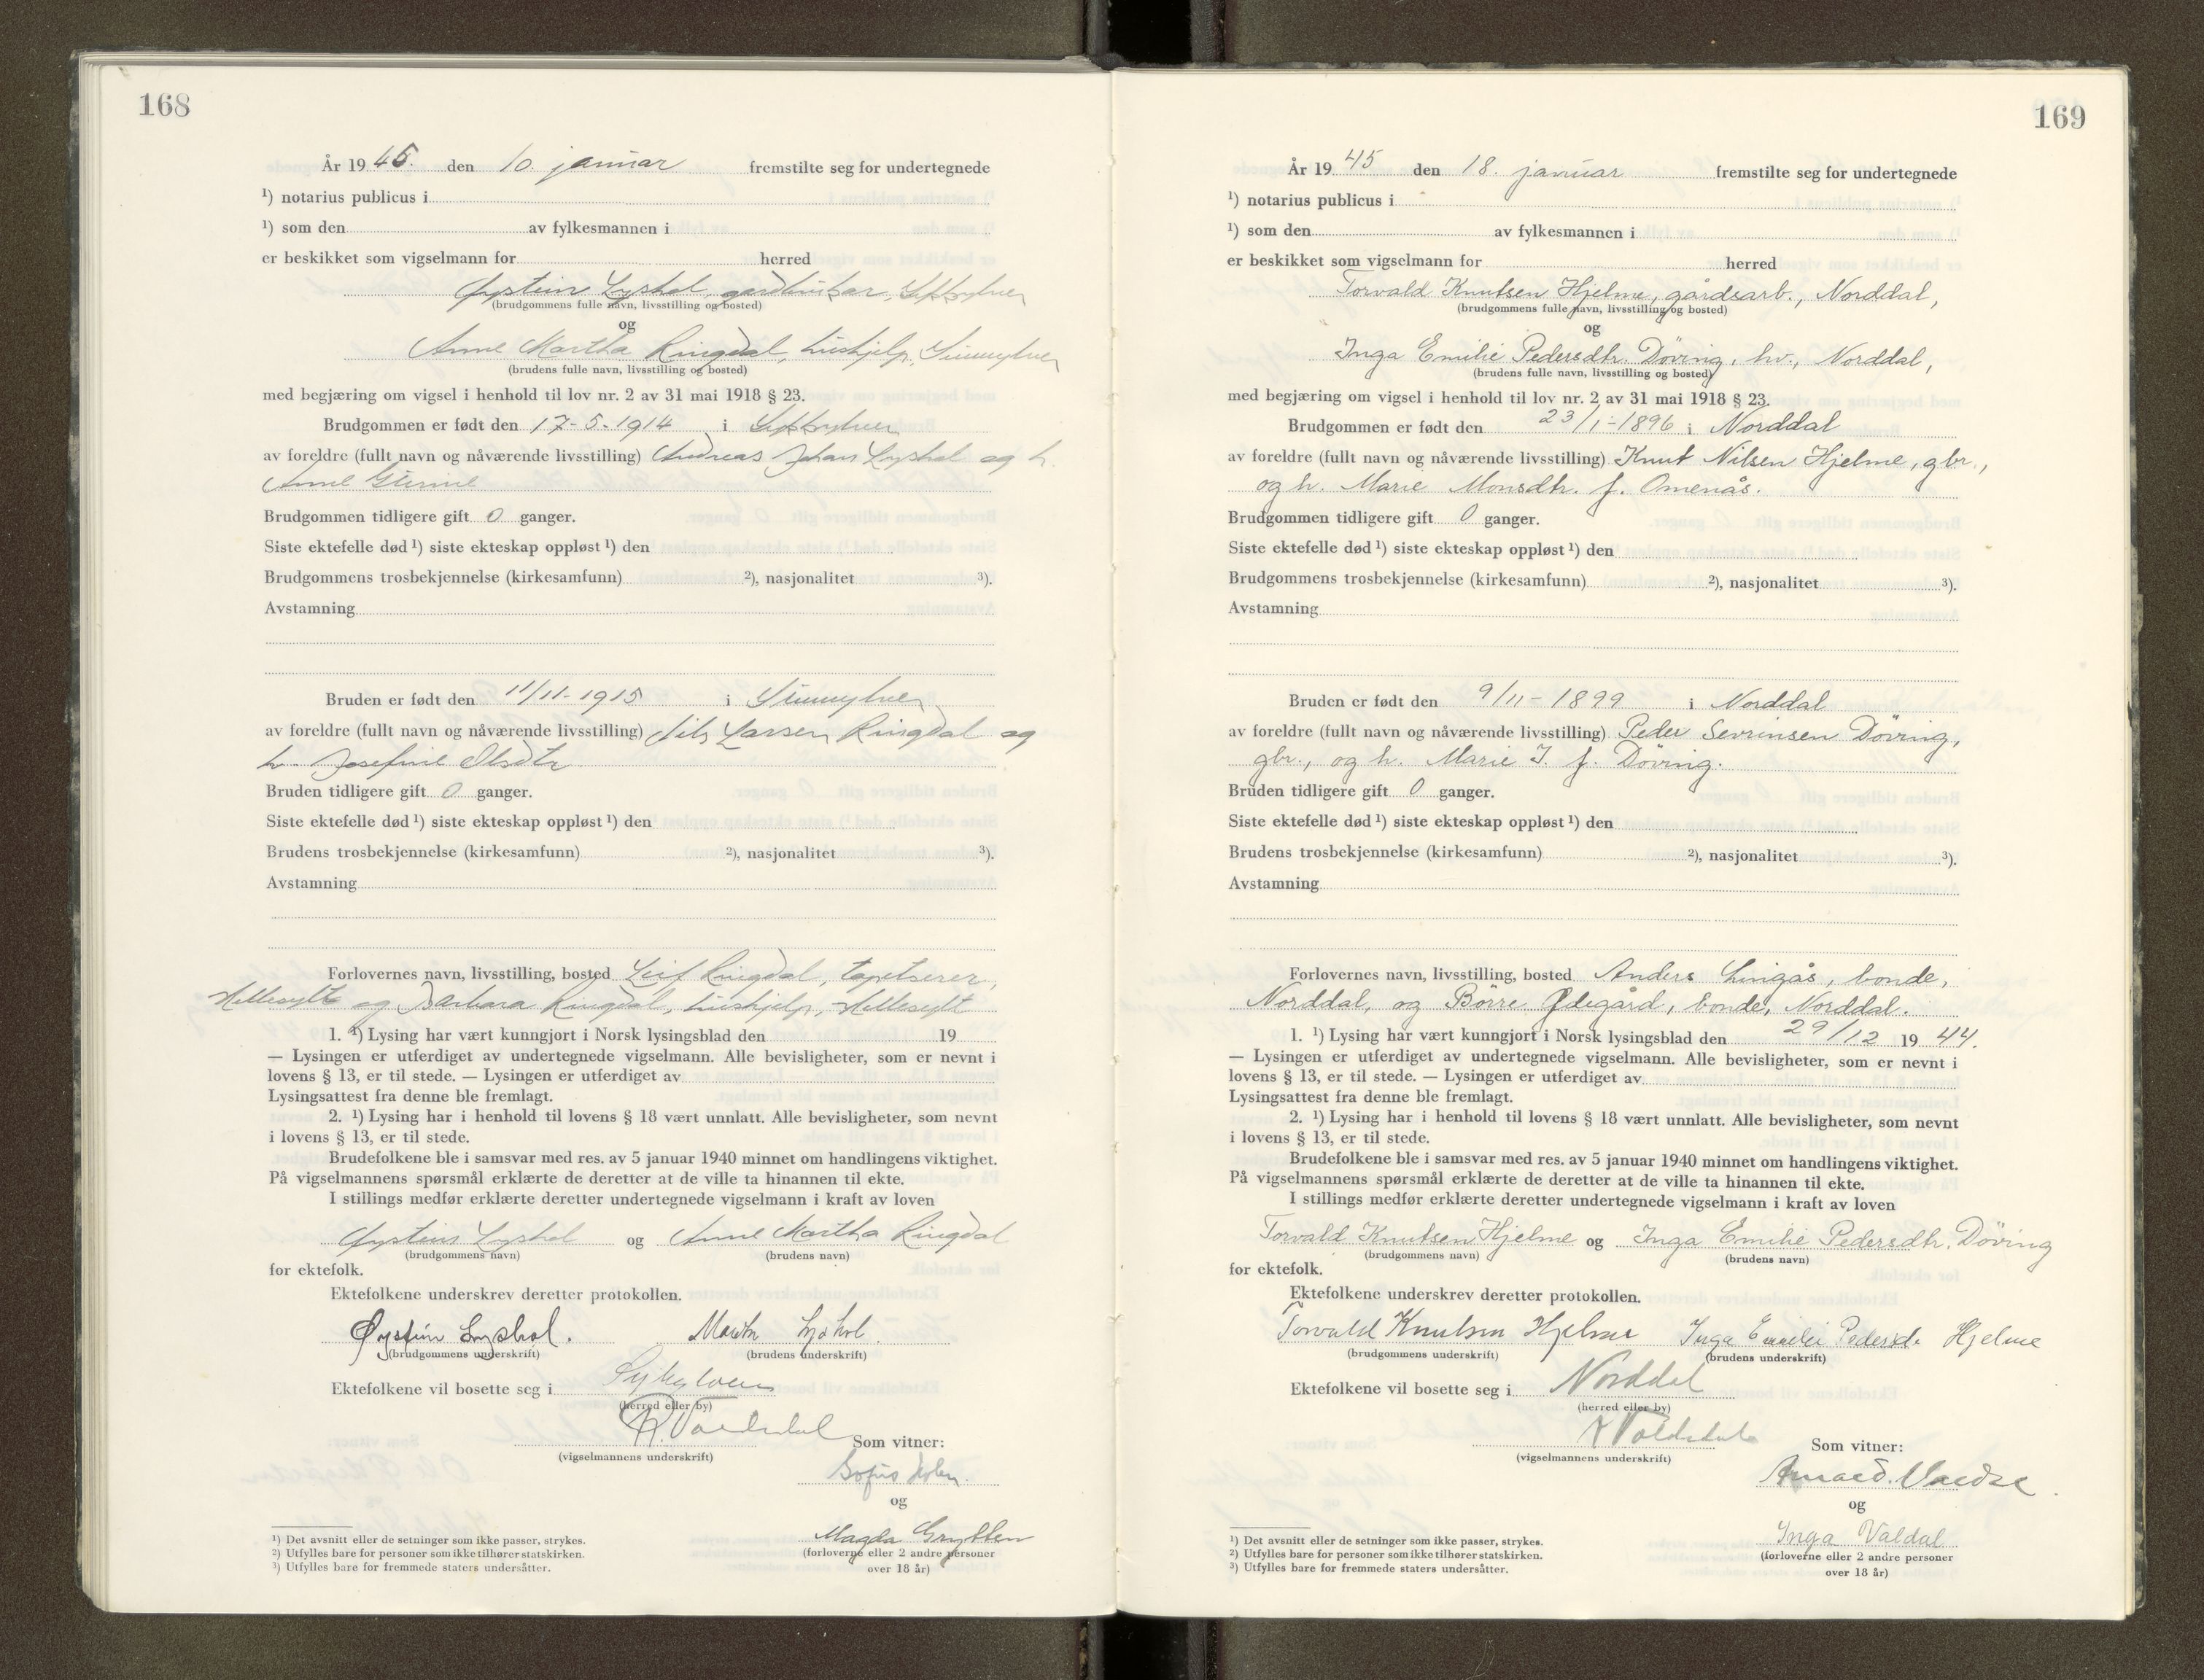 168
År 1945. den 10. januar fremstilte seg for undertegnede
¹) notarius publicus i
¹) som den av fylkesmannen i
er beskikket som vigselmann for herred
Øystein Lyshol, gardbrukar,
(brudgommens fulle navn, livsstilling og bosted)
og
Anne Martha Ringdal, hushjelp, Sunnylven
(brudens fulle navn, livsstilling og bosted)
med begjæring om vigsel i henhold til lov nr. 2 av 31 mai 1918 § 23.
Brudgommen er født den 17-5-1914 i
av foreldre (fullt navn og nåværende livsstilling) Andreas Johan Lyshol og h.
Anne
Brudgommen tidligere gift 0 ganger.
Siste ektefelle død ¹) siste ekteskap oppløst ¹) den
Brudgommens trosbekjennelse (kirkesamfunn) ²), nasjonalitet ³).
Avstamning
Bruden er født den 11/11-1915 i Sunnylven
av foreldre (fullt navn og nåværende livsstilling) Nils Larsen Ringdal og
h. Josefine Olsdtr
Bruden tidligere gift 0 ganger.
Siste ektefelle død ¹) siste ekteskap oppløst ¹) den
Brudens trosbekjennelse (kirkesamfunn) ²), nasjonalitet ³).
Avstamning
Forlovernes navn, livsstilling, bosted Leif Ringdal, tapetserer,
Hellesylt og Barbara Ringdal, hushjelp, Hellesylt
1. ¹) Lysing har vært kunngjort i Norsk lysingsblad den 19
— Lysingen er utferdiget av undertegnede vigselmann. Alle bevisligheter, som er nevnt i
lovens § 13, er til stede. — Lysingen er utferdiget av
Lysingsattest fra denne ble fremlagt.
2. ¹) Lysing har i henhold til lovens § 18 vært unnlatt. Alle bevisligheter, som nevnt
i lovens § 13, er til stede.
Brudefolkene ble i samsvar med res. av 5 januar 1940 minnet om handlingens viktighet.
På vigselmannens spørsmål erklærte de deretter at de ville ta hinannen til ekte.
I stillings medfør erklærte deretter undertegnede vigselmann i kraft av loven
Øystein Lyshol og Anne Martha Ringdal
(brudgommens navn) (brudens navn)
for ektefolk.
Ektefolkene underskrev deretter protokollen.
Øystein Lyshol. Martha Lyshol.
(brudgommens underskrift) (brudens underskrift)
Ektefolkene vil bosette seg i Sykylven
(herred eller by)
(vigselmannens underskrift)
Som vitner:
Sofus Holen.
og
Magda Grytten
(forloverne eller 2 andre personer
over 18 år)
¹) Det avsnitt eller de setninger som ikke passer, strykes.
²) Utfylles bare for personer som ikke tilhører statskirken.
³) Utfylles bare for fremmede staters undersåtter.
169
År 1945 den 18. januar fremstilte seg for undertegnede
¹) notarius publicus i
¹) som den av fylkesmannen i
er beskikket som vigselmann for herred
Torvald Knutsen Hjelme, gårdsarb., Norddal,
(brudgommens fulle navn, livsstilling og bosted)
og
Inga Emilie Pedersdtr. Döving, hv., Norddal,
(brudens fulle navn, livsstilling og bosted)
med begjæring om vigsel i henhold til lov nr. 2 av 31 mai 1918 § 23.
Brudgommen er født den 23/1-1896 i Norddal
av foreldre (fullt navn og nåværende livsstilling) Knut Nilsen Hjelme, gbr.,
og h. Marie Monsdtr. f. Omenås.
Brudgommen tidligere gift 0 ganger.
Siste ektefelle død ¹) siste ekteskap oppløst ¹) den
Brudgommens trosbekjennelse (kirkesamfunn) ²), nasjonalitet ³).
Avstamning
Bruden er født den 9/11-1899 i Norddal
av foreldre (fullt navn og nåværende livsstilling) Peder Sevrinsen Döving,
gbr., og h. Marie I. f. Döving.
Bruden tidligere gift 0 ganger.
Siste ektefelle død ¹) siste ekteskap oppløst ¹) den
Brudens trosbekjennelse (kirkesamfunn) ²), nasjonalitet ³).
Avstamning
Forlovernes navn, livsstilling, bosted Anders Lingås, bonde,
Norddal, og Börre Ødegård, bonde, Norddal.
1. ¹) Lysing har vært kunngjort i Norsk lysingsblad den 29/12 1944.
— Lysingen er utferdiget av undertegnede vigselmann. Alle bevisligheter, som er nevnt i
lovens § 13, er til stede. — Lysingen er utferdiget av
Lysingsattest fra denne ble fremlagt.
2. ¹) Lysing har i henhold til lovens § 18 vært unnlatt. Alle bevisligheter, som nevnt
i lovens § 13, er til stede.
Brudefolkene ble i samsvar med res. av 5 januar 1940 minnet om handlingens viktighet.
På vigselmannens spørsmål erklærte de deretter at de ville ta hinannen til ekte.
I stillings medfør erklærte deretter undertegnede vigselmann i kraft av loven
Torvald Knutsen Hjelme og Inga Emilie Pedersdtr. Döving
(brudgommens navn) (brudens navn)
for ektefolk.
Ektefolkene underskrev deretter protokollen.
Torvald Knutsen Hjelme Inga Emilie Pedersd. Hjelme
(brudgommens underskrift) (brudens underskrift)
Ektefolkene vil bosette seg i Norddal
(herred eller by)
(vigselmannens underskrift)
Som vitner:
og
Inga Valdal
(forloverne eller 2 andre personer
over 18 år)
¹) Det avsnitt eller de setninger som ikke passer, strykes.
²) Utfylles bare for personer som ikke tilhører statskirken.
³) Utfylles bare for fremmede staters undersåtter.